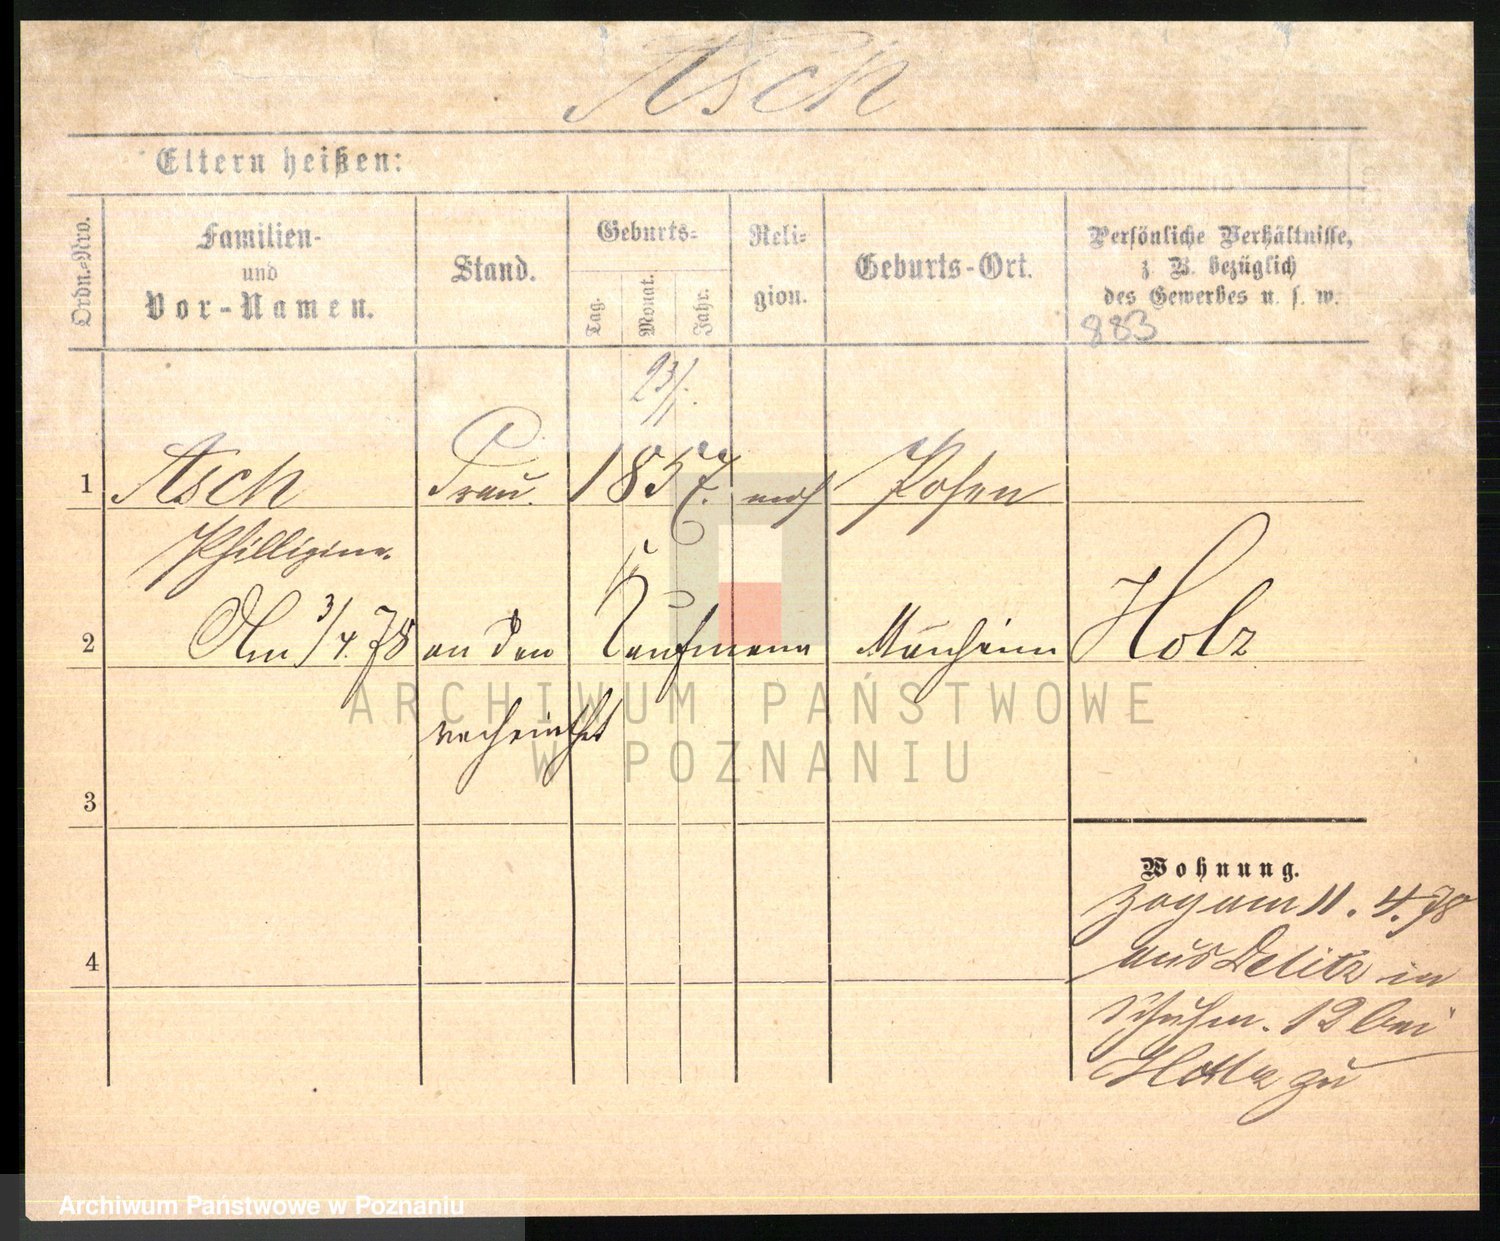 Asch
Eltern heißen:
Ordn.-Nro.
Familien-
und
Vor-Namen.
Stand.
Geburts-
Tag.
Monat.
Jahr.
Reli-
gion.
Geburts-Ort.
Persönliche Verhältnisse,
z. B. bezüglich
des Gewerbes u. s. w.
883
23/
1 Asch Frau 1857. mos Posen
Phillipine.
2 Am 3/4.78 an den Kaufmann Manheim Holz
verheirathet
3
Wohnung.
Zog am 11.4.78
4 aus Delitz in
Schuhm. 12 bei
zu
ARCHIWUM PAŃSTWOWE
W POZNANIU
Archiwum Państwowe w Poznaniu